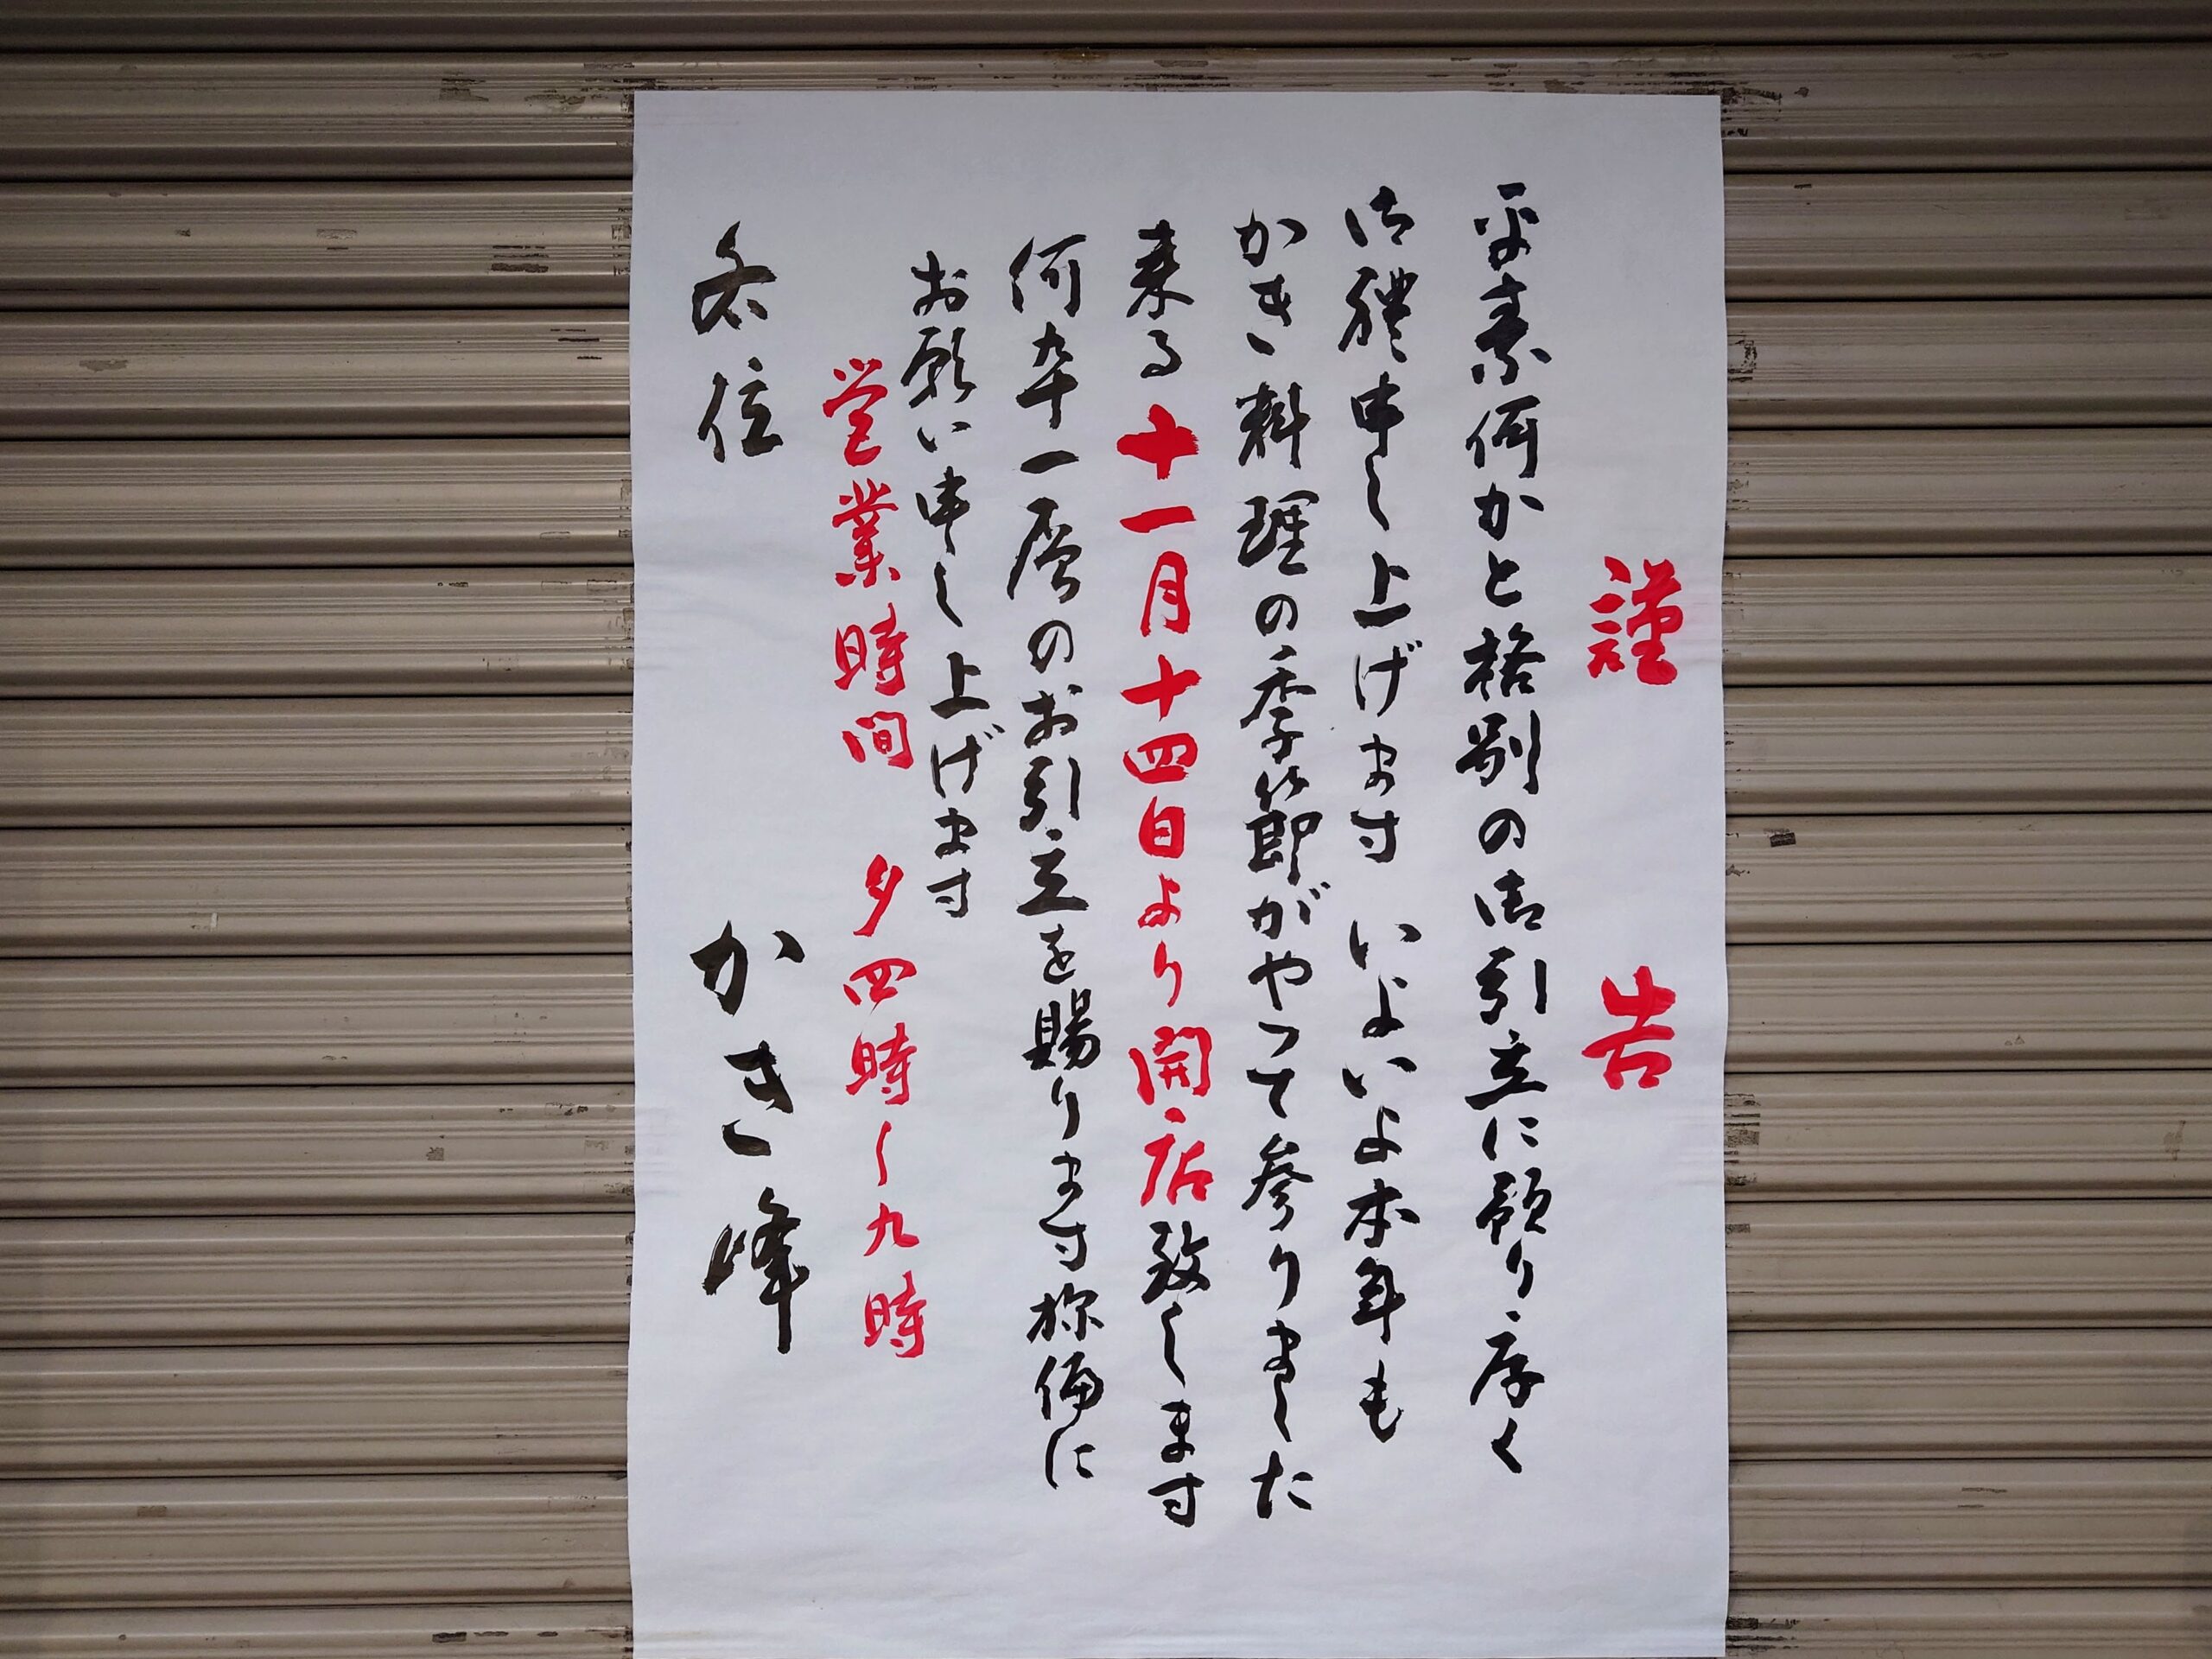 謹告
平素何かと格別の御引立に預り厚く
御禮申し上げます いよいよ本年も
かき料理の季節がやって参りました
来る十一月十四日より開店致します
何卒一層のお引立を賜ります様偏に
お願い申し上げます
営業時間 夕四時〜九時
各位 かき峰